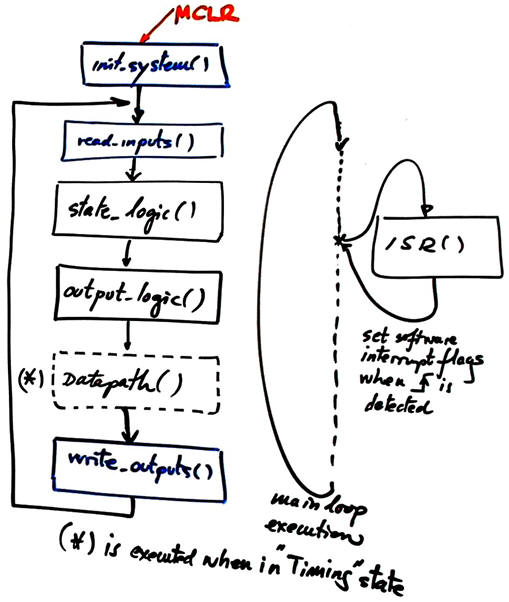 MCLR
init_system()
read_inputs()
state_logic()
output_logic()
(*) Datapath()
write_outputs()
ISR()
set software
interrupt flags
when is
detected
main loop
execution
(*) is executed when in "Timing" state